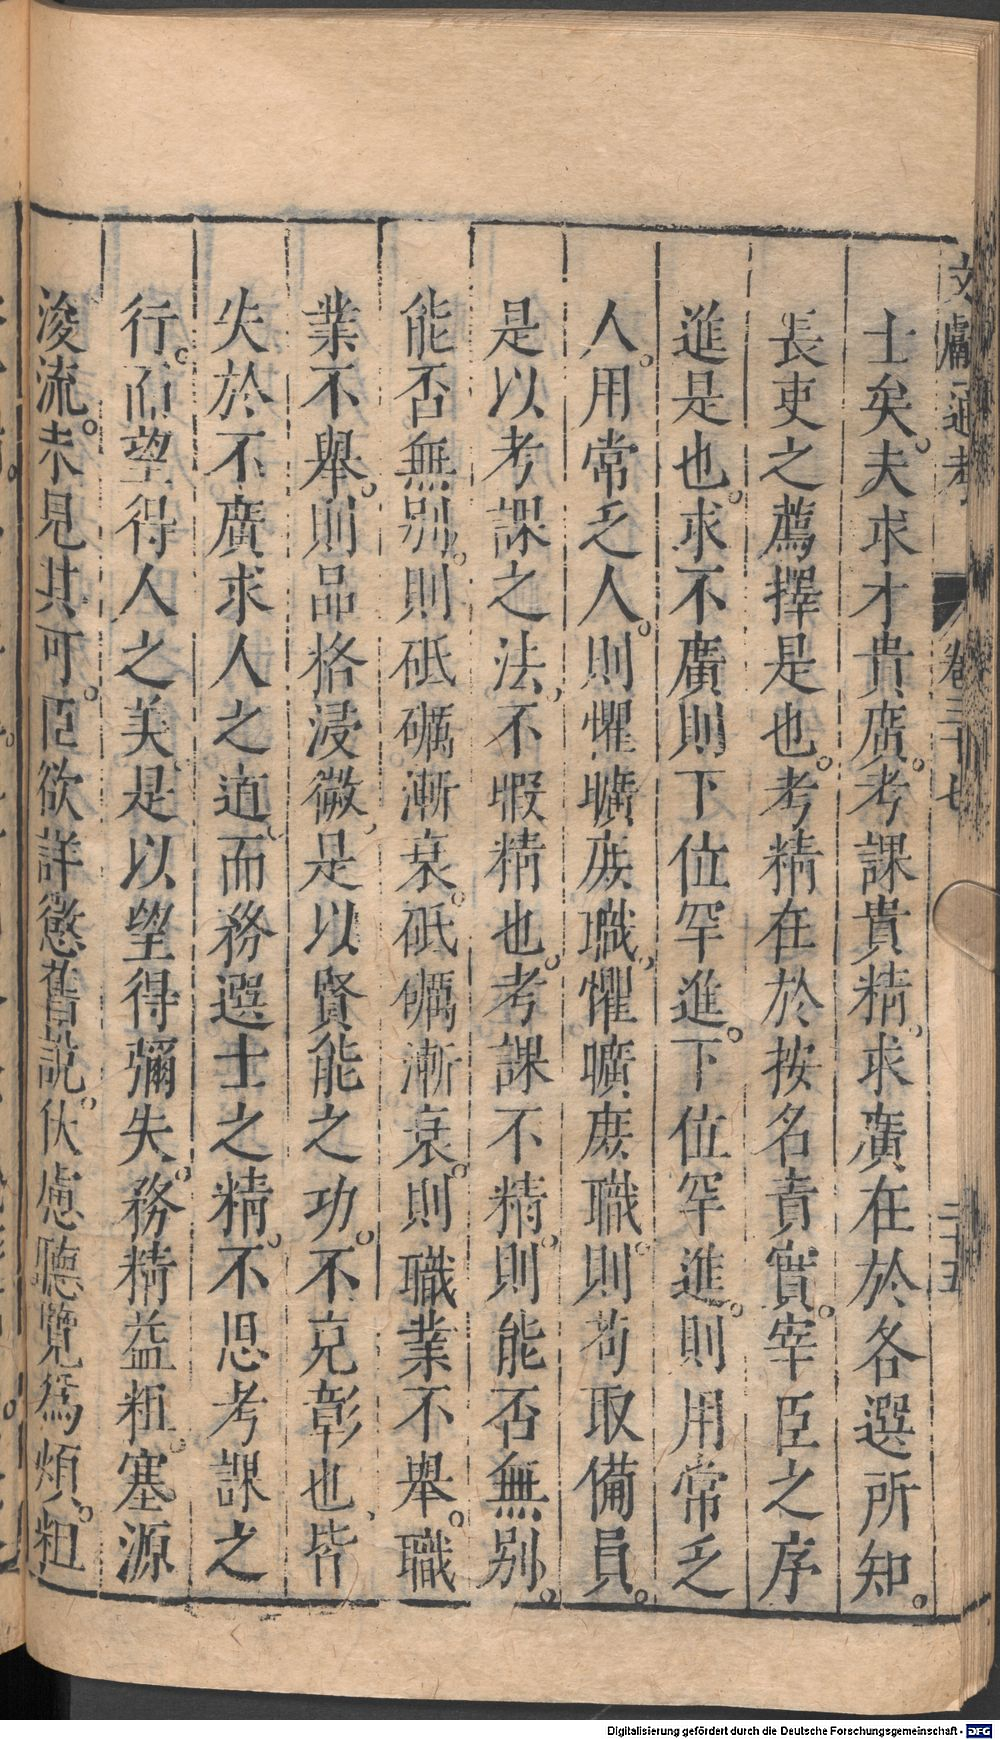 士矣。夫求才貴廣。考課貴精。求廣在於各選所知。
長吏之薦擇是也。考精在於按名責實。宰臣之序
進是也。求不廣則下位罕進。下位罕進。則用常乏
人。用常乏人。則懼曠庶職。懼曠庶職。則苟取備員。
是以考課之法、不暇精也。考課不精。則能否無別。
能否無別。則砥礪漸衰。砥礪漸衰。則職業不舉。職
業不舉。則品格浸微、是以賢能之功。不克彰也、皆
失於不廣求人之道、而務選士之精。不思考課之
行。而望得人之美、是以望得彌失。務精益粗。塞源
浚流。未見其可。臣欲詳懲舊說。伏慮聽覽爲煩。粗
卷三十七
二十五
Digitalisierung gefördert durch die Deutsche Forschungsgemeinschaft - DFG